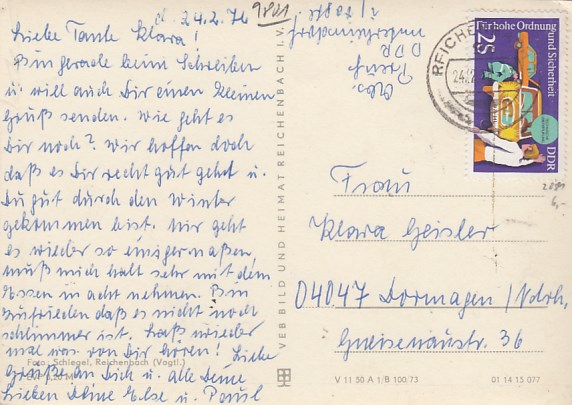 d. 24.2.76
9801
Liebe Tante Klara!
Bin gerade beim Schreiben
u. will auch Dir einen kleinen
Gruß senden. Wie geht es
Dir noch? Wir hoffen doch
daß es Dir recht gut geht u.
Du gut durch den Winter
gekommen bist. Mir geht
es wieder so einigermaßen,
muß mich halt sehr mit dem
Essen in acht nehmen. Bin
zufrieden daß es nicht noch
schlimmer ist. Laß wieder
mal was von Dir hören! Liebe
Grüße an Dich u. alle Deine
Lieben Deine Else u. Paul
Foto: Schlegel, Reichenbach (Vogtl.)
VEB BILD UND HEIMAT REICHENBACH I. V.
Abs.
DDR
REICHEN
24.
Für hohe Ordnung
und Sicherheit
25
DDR
6,-
Frau
Klara Geisler
04047 Dormagen / Ndrh.
Gneisenaustr. 36
V 11 50 A 1/B 100/73
01 14 15 077